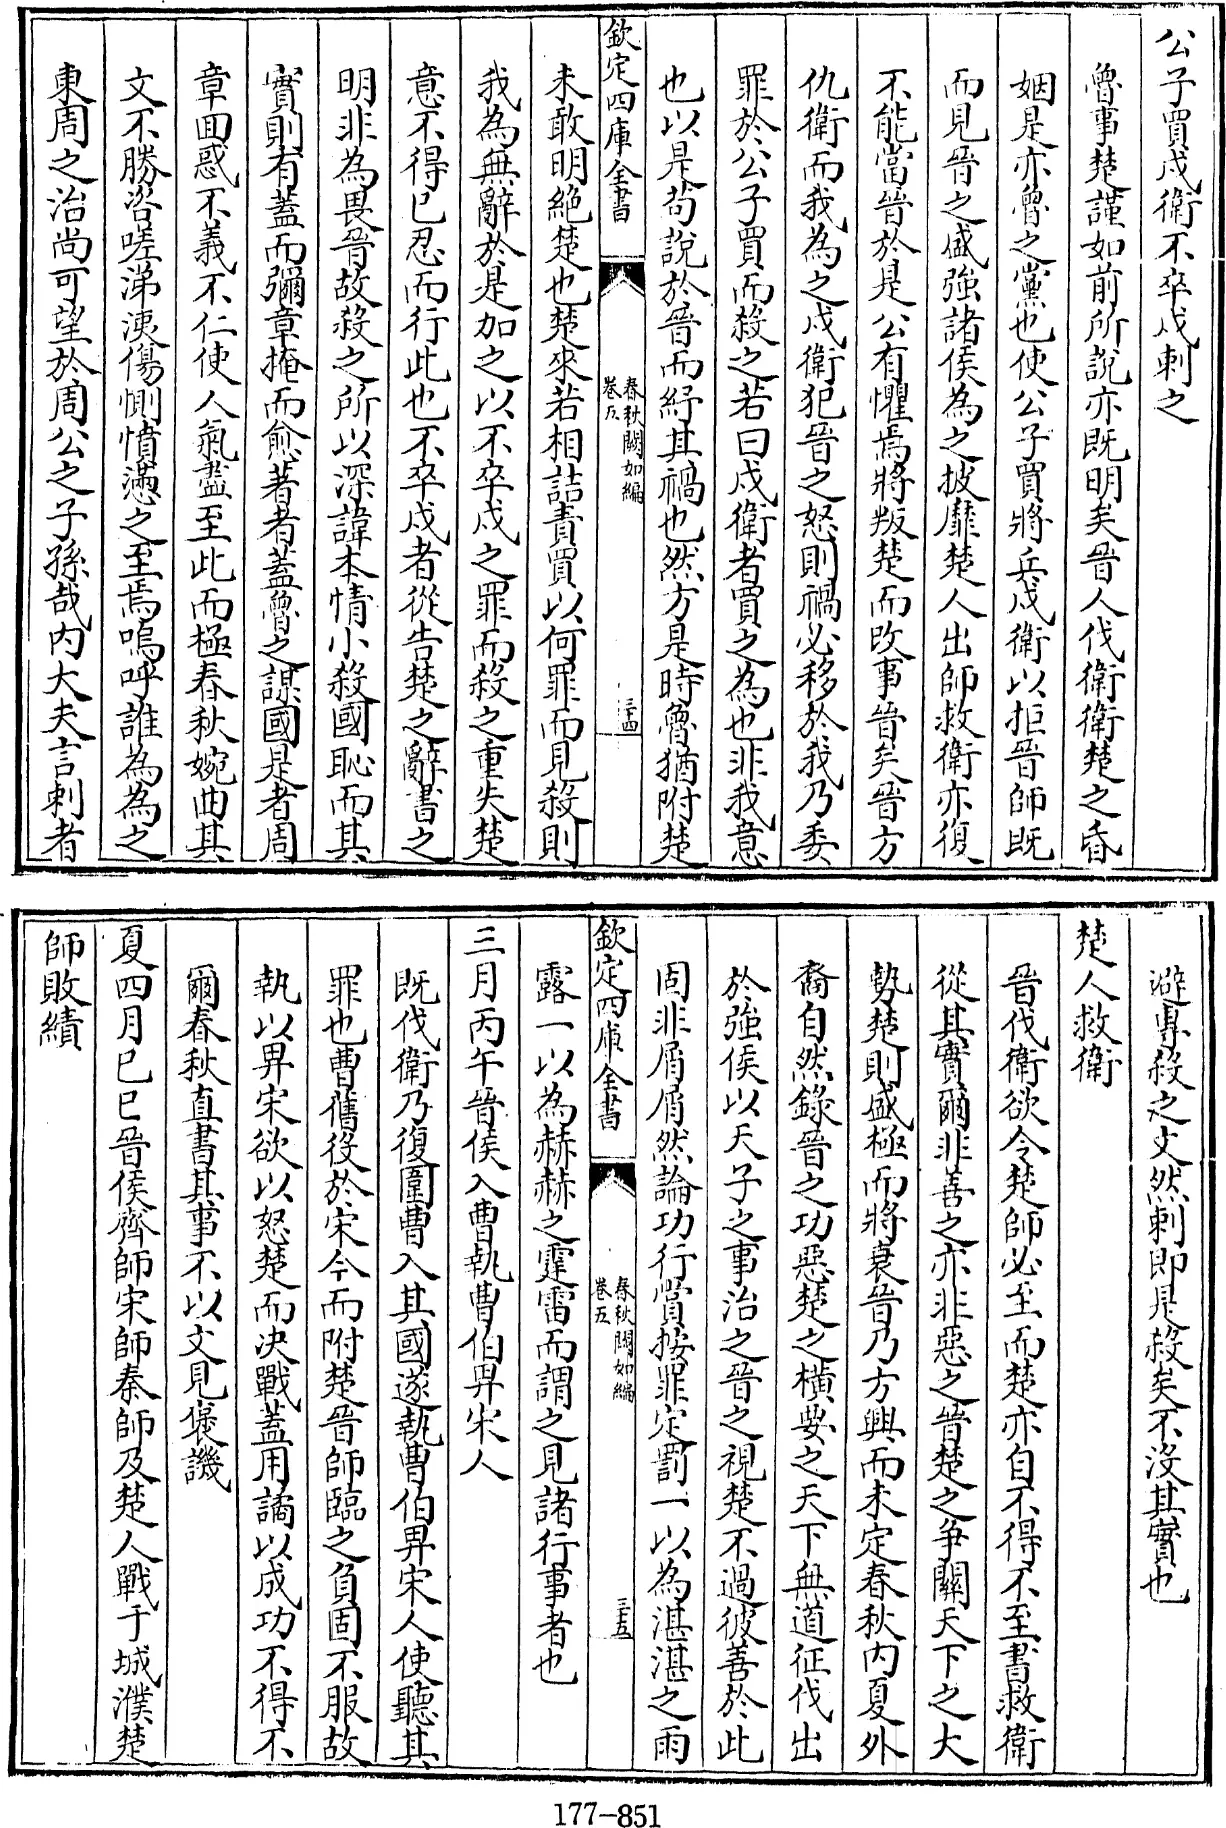 公子買戍衛不卒戍刺之
魯事楚謹如前所說亦既明矣晉人伐衛衛楚之昏
姻是亦魯之黨也使公子買將兵戍衛以拒晉師既
而見晉之盛強諸侯為之披靡楚人出師救衛亦復
不能當晉於是公有懼焉將叛楚而改事晉矣晉方
仇衛而我為之戍衛犯晉之怒則禍必移於我乃委
罪於公子買而殺之若曰戍衛者買之為也非我意
也以是苟說於晉而紓其禍也然方是時魯猶附楚
欽定四庫全書
春秋闕如編
卷五
三十四
未敢明絕楚也楚來若相詰責買以何罪而見殺則
我為無辭於是加之以不卒戍之罪而殺之重失楚
意不得已忍而行此也不卒戍者從告楚之辭書之
明非為畏晉故殺之所以深諱本情小殺國恥而其
實則有蓋而彌章掩而愈著者蓋魯之謀國是者周
章囬惑不義不仁使人氣盡至此而極春秋婉曲其
文不勝咨嗟涕洟傷惻憤懣之至焉嗚呼誰為為之
東周之治尚可望於周公之子孫哉内大夫言刺者
避專殺之文然刺即是殺矣不沒其實也
楚人救衛
晉伐衛欲令楚師必至而楚亦自不得不至書救衛
從其實爾非善之亦非惡之晉楚之爭關天下之大
勢楚則盛極而將衰晉乃方興而未定春秋内夏外
裔自然錄晉之功惡楚之橫要之天下無道征伐出
於強侯以天子之事治之晉之視楚不過彼善於此
固非屑屑然論功行賞按罪定罰一以為湛湛之雨
欽定四庫全書
春秋闕如編
卷五
三十五
露一以為赫赫之霆雷而謂之見諸行事者也
三月丙午晉侯入曹執曹伯畀宋人
既伐衛乃復圍曹入其國遂執曹伯畀宋人使聽其
罪也曹舊役於宋今而附楚晉師臨之負固不服故
執以畀宋欲以怒楚而決戰蓋用譎以成功不得不
爾春秋直書其事不以文見褒譏
夏四月己巳晉侯齊師宋師秦師及楚人戰于城濮楚
師敗績
177-851